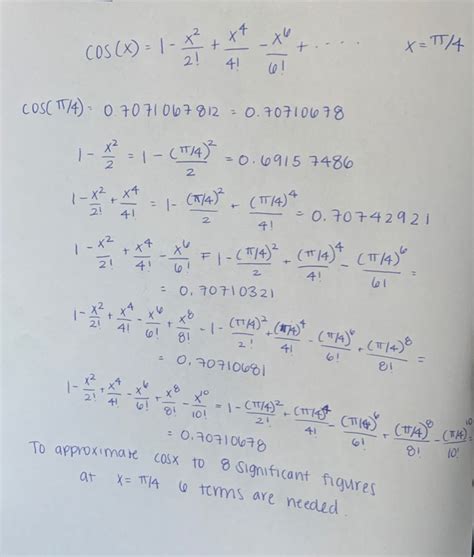 cos(x) = 1 - x²/2! + x⁴/4! - x⁶/6! + ..... x = π/4
cos(π/4) = 0.7071067812 = 0.70710678
1 - x²/2 = 1 - (π/4)²/2 = 0.69157486
1 - x²/2! + x⁴/4! = 1 - (π/4)²/2 + (π/4)⁴/4! = 0.70742921
1 - x²/2! + x⁴/4! - x⁶/6! = 1 - (π/4)²/2 + (π/4)⁴/4! - (π/4)⁶/6! =
= 0.70710321
1 - x²/2! + x⁴/4! - x⁶/6! + x⁸/8! - 1 - (π/4)²/2! + (π/4)⁴/4! - (π/4)⁶/6! + (π/4)⁸/8! =
= 0.70710681
1 - x²/2! + x⁴/4! - x⁶/6! + x⁸/8! - x¹⁰/10! = 1 - (π/4)²/2! + (π/4)⁴/4! - (π/4)⁶/6! + (π/4)⁸/8! - (π/4)¹⁰/10! =
= 0.70710678
To approximate cosx to 8 significant figures
at x = π/4 6 terms are needed.